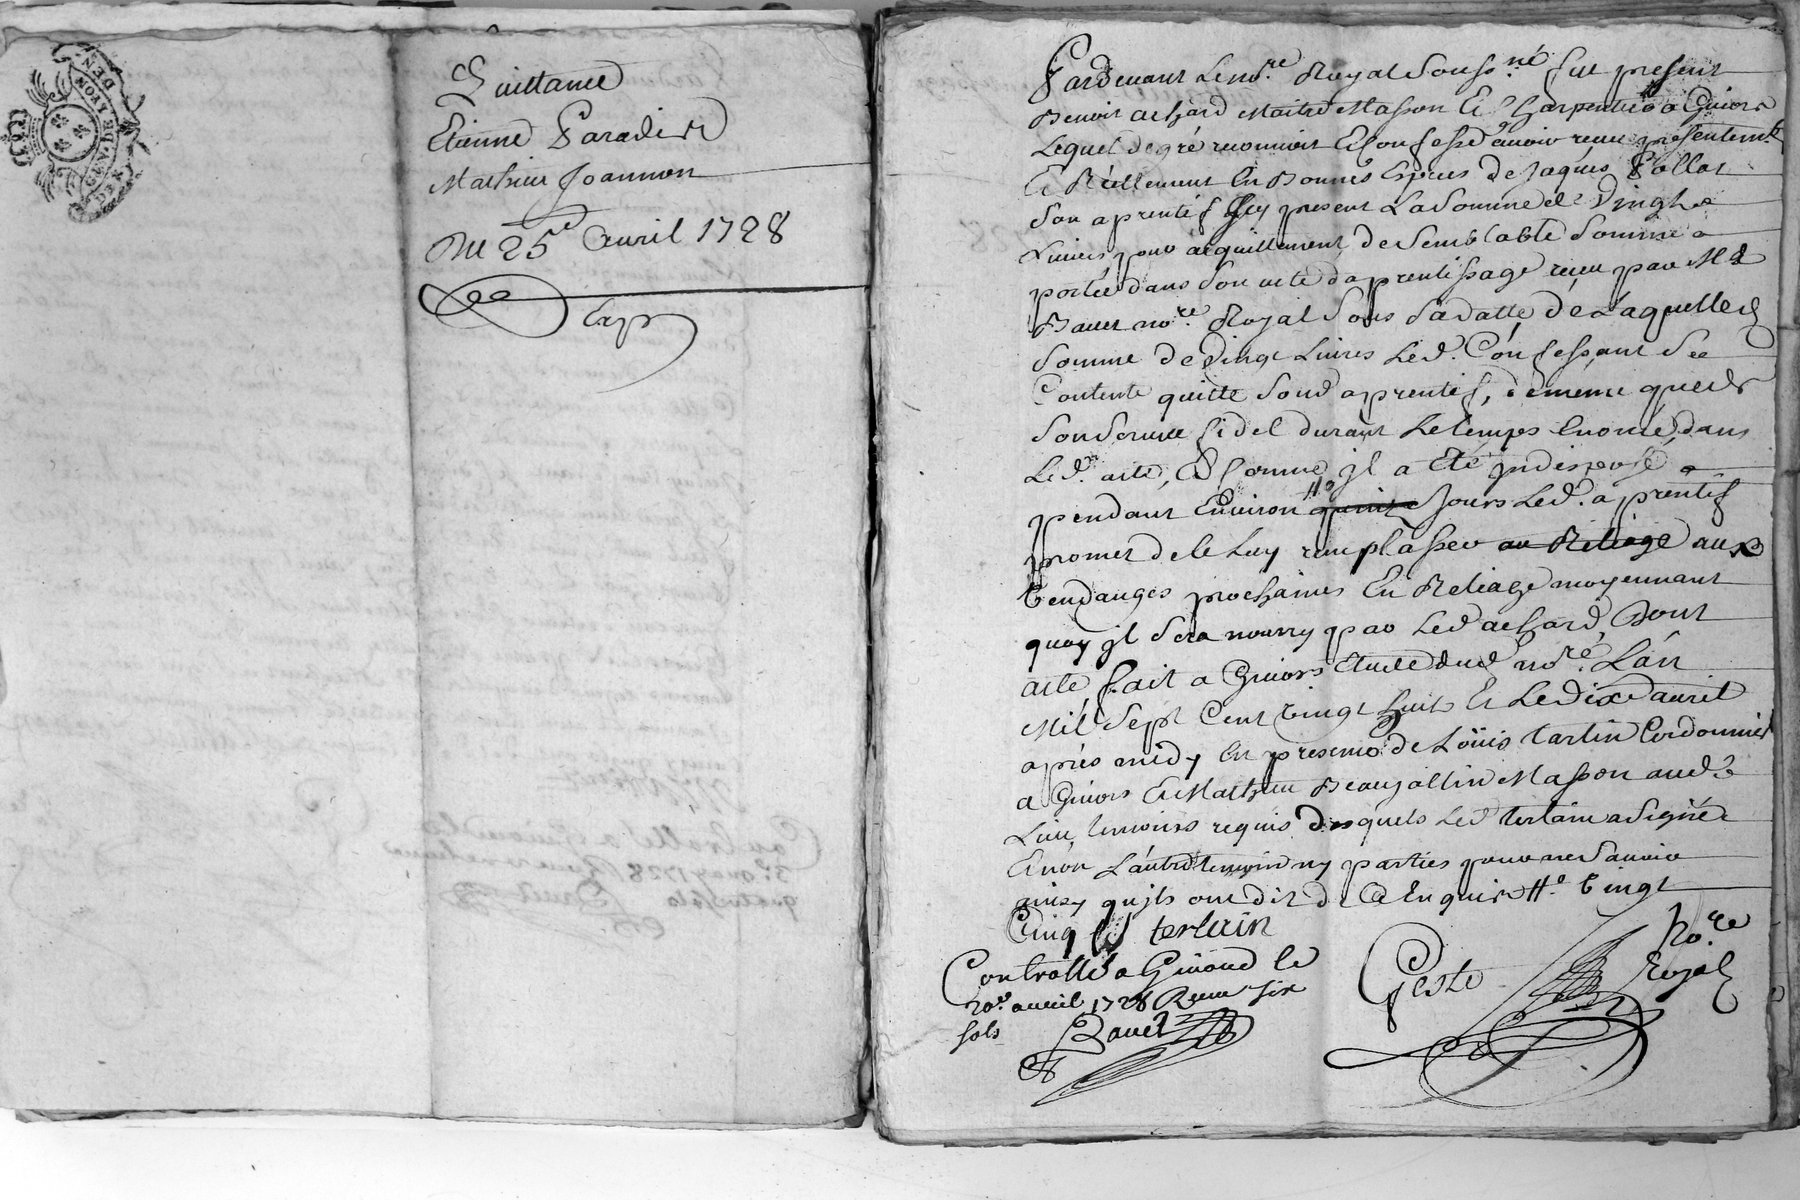 Quittance
Etienne Paradis
Mathieu Joannon
Du 25e avril 1728
Exp
Pardevant le nore. Royal soussné. fut present
Benoit achard Maitre Masson et Charpentier a Givors
Lequel de gré reconnoit et confesse avoir receu presentemt
et Réellement en Bonnes Especes de Jaques Pollat
son aprentif icy present La somme de vingt
Livres pour acquittement de semblable somme
portée dans son acte daprentissage receu par Me
Bauet nore. Royal sous sa datte de Laquelle
somme de vingt Livres Led. Confessant se
Contente quitte sond aprentif, de meme que de
son service fidel durant le temps enoncé dans
Led. acte, Et comme jl a eté indisposé
pendant Environ jours Led. aprentif
promet de le luy remplasser au Reliage aux
vendanges prochaines En Reliage moyennant
quoy jl sera nourry par Led achard, Dont
acte fait a Givors Etude dud nore. L'an
Mil sept Cent vingt huit et Le dix avril
apres midy en presence de Loüis tartin Cordonnier
a Givors et Mathieu Beaujollin Masson aud
Lieu temoins requis desquels Led a signé
et non L'autre temoin ny parties pour ne sçavoir
ainsy qu'jls ont dit de ce Enquis vingt
Cinq
Controllé a Givord le
20e avril 1728 Receu six
sols Bauet
Geste Nore
Royal
Controllé a Givord le
3e may 1728 Receu